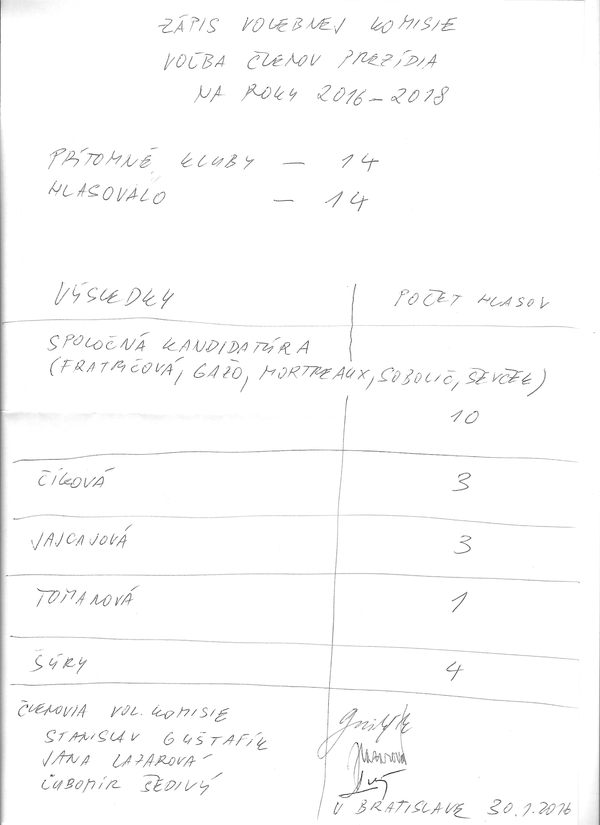 ZÁPIS VOLEBNEJ KOMISIE
VOĽBA ČLENOV PREZÍDIA
NA ROKY 2016-2018
PRÍTOMNÉ KLUBY - 14
HLASOVALO - 14
VÝSLEDKY POČET HLASOV
SPOLOČNÁ KANDIDATÚRA
(FRATRIČOVÁ, GAŽO, MORTREAUX, SOBOLIČ, ŠEVČEK)
10
ČÍKOVÁ 3
JAJCAJOVÁ 3
TOMANOVÁ 1
ŠÚRY 4
ČLENOVIA VOL. KOMISIE
STANISLAV GUŠTAFÍK
JANA LAZAROVÁ
ĽUBOMÍR ŠEDIVÝ
V BRATISLAVE 30.1.2016